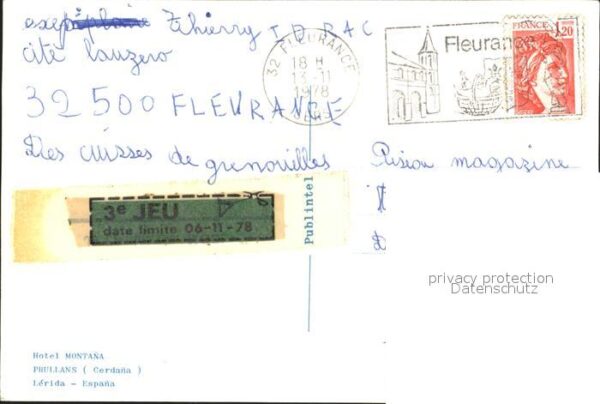 Thierry
cité
32500 FLEURANCE
Des cuisses de grenouilles
magazine
32 FLEURANCE
18 H
13-11
1978
GERS
Fleurance
FRANCE
1,20
3e JEU
date limite 06-11-78
Publintel
privacy protection
Datenschutz
Hotel MONTAÑA
PRULLANS ( Cerdaña )
Lérida - España